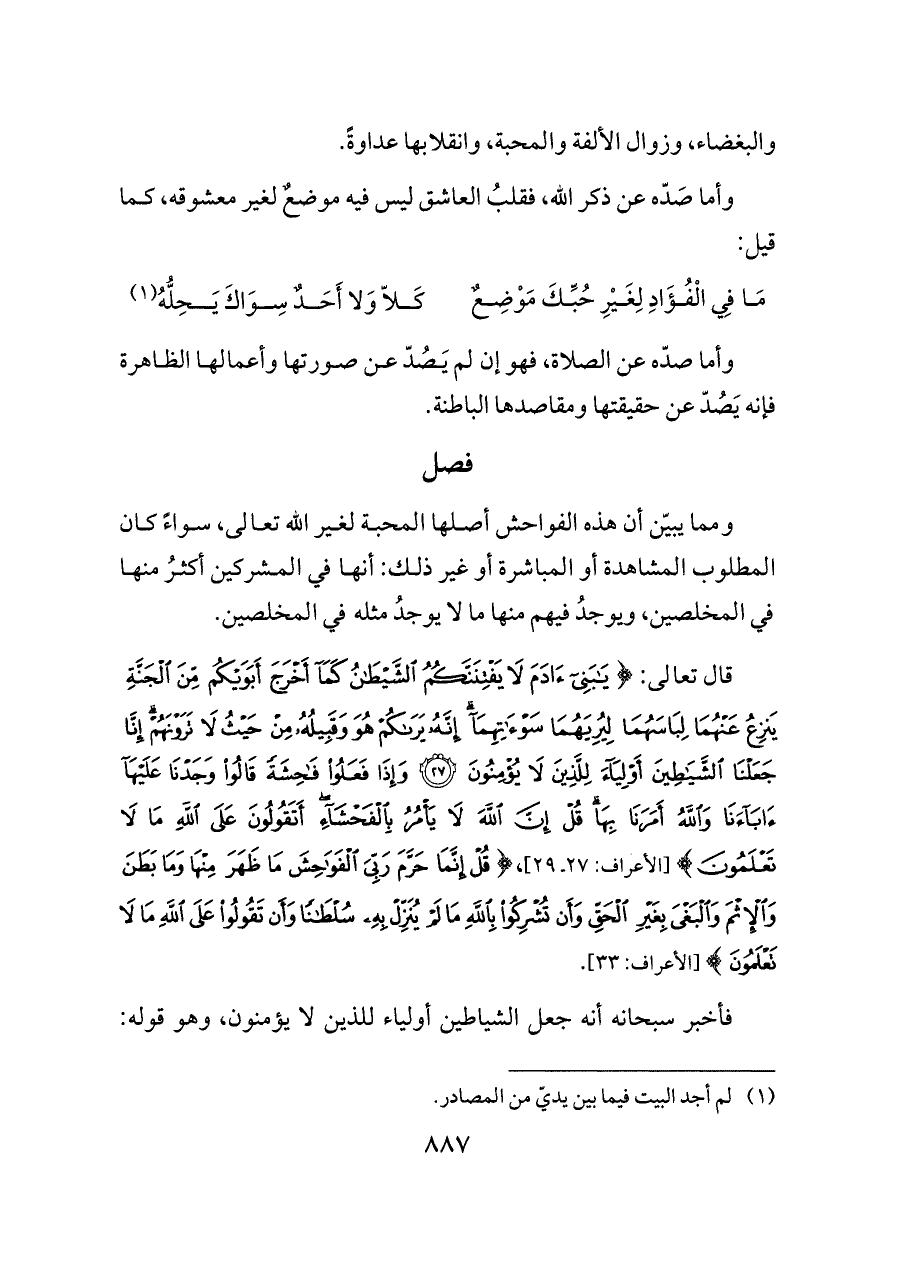 والبغضاء، وزوال الألفة والمحبة، وانقلابها عداوةً.
وأما صَدّه عن ذكر الله، فقلبُ العاشق ليس فيه موضعٌ لغير معشوقه، كما
قيل:
مَا فِي الْفُؤَادِ لِغَيْرِ حُبِّكَ مَوْضِعٌ كَلاّ وَلا أَحَدٌ سِوَاكَ يَحِلُّهُ(١)
وأما صدّه عن الصلاة، فهو إن لم يَصُدّ عن صورتها وأعمالها الظاهرة
فإنه يَصُدّ عن حقيقتها ومقاصدها الباطنة.
فصل
ومما يبيّن أن هذه الفواحش أصلها المحبة لغير الله تعالى، سواءً كان
المطلوب المشاهدة أو المباشرة أو غير ذلك: أنها في المشركين أكثرُ منها
في المخلصين، ويوجدُ فيهم منها ما لا يوجدُ مثله في المخلصين.
قال تعالى: ﴿ يَٰبَنِىٓ ءَادَمَ لَا يَفْتِنَنَّكُمُ ٱلشَّيْطَٰنُ كَمَآ أَخْرَجَ أَبَوَيْكُم مِّنَ ٱلْجَنَّةِ
يَنزِعُ عَنْهُمَا لِبَاسَهُمَا لِيُرِيَهُمَا سَوْءَٰتِهِمَآ ۗ إِنَّهُۥ يَرَىٰكُمْ هُوَ وَقَبِيلُهُۥ مِنْ حَيْثُ لَا تَرَوْنَهُمْ ۗ إِنَّا
جَعَلْنَا ٱلشَّيَٰطِينَ أَوْلِيَآءَ لِلَّذِينَ لَا يُؤْمِنُونَ ﴿٢٧﴾ وَإِذَا فَعَلُوا۟ فَٰحِشَةً قَالُوا۟ وَجَدْنَا عَلَيْهَآ
ءَابَآءَنَا وَٱللَّهُ أَمَرَنَا بِهَا ۗ قُلْ إِنَّ ٱللَّهَ لَا يَأْمُرُ بِٱلْفَحْشَآءِ ۖ أَتَقُولُونَ عَلَى ٱللَّهِ مَا لَا
تَعْلَمُونَ ﴾ [الأعراف: ٢٧ـ ٢٩]، ﴿ قُلْ إِنَّمَا حَرَّمَ رَبِّىَ ٱلْفَوَٰحِشَ مَا ظَهَرَ مِنْهَا وَمَا بَطَنَ
وَٱلْإِثْمَ وَٱلْبَغْىَ بِغَيْرِ ٱلْحَقِّ وَأَن تُشْرِكُوا۟ بِٱللَّهِ مَا لَمْ يُنَزِّلْ بِهِۦ سُلْطَٰنًا وَأَن تَقُولُوا۟ عَلَى ٱللَّهِ مَا لَا
تَعْلَمُونَ ﴾ [الأعراف: ٣٣].
فأخبر سبحانه أنه جعل الشياطين أولياء للذين لا يؤمنون، وهو قوله:
(١) لم أجد البيت فيما بين يديّ من المصادر.
٨٨٧